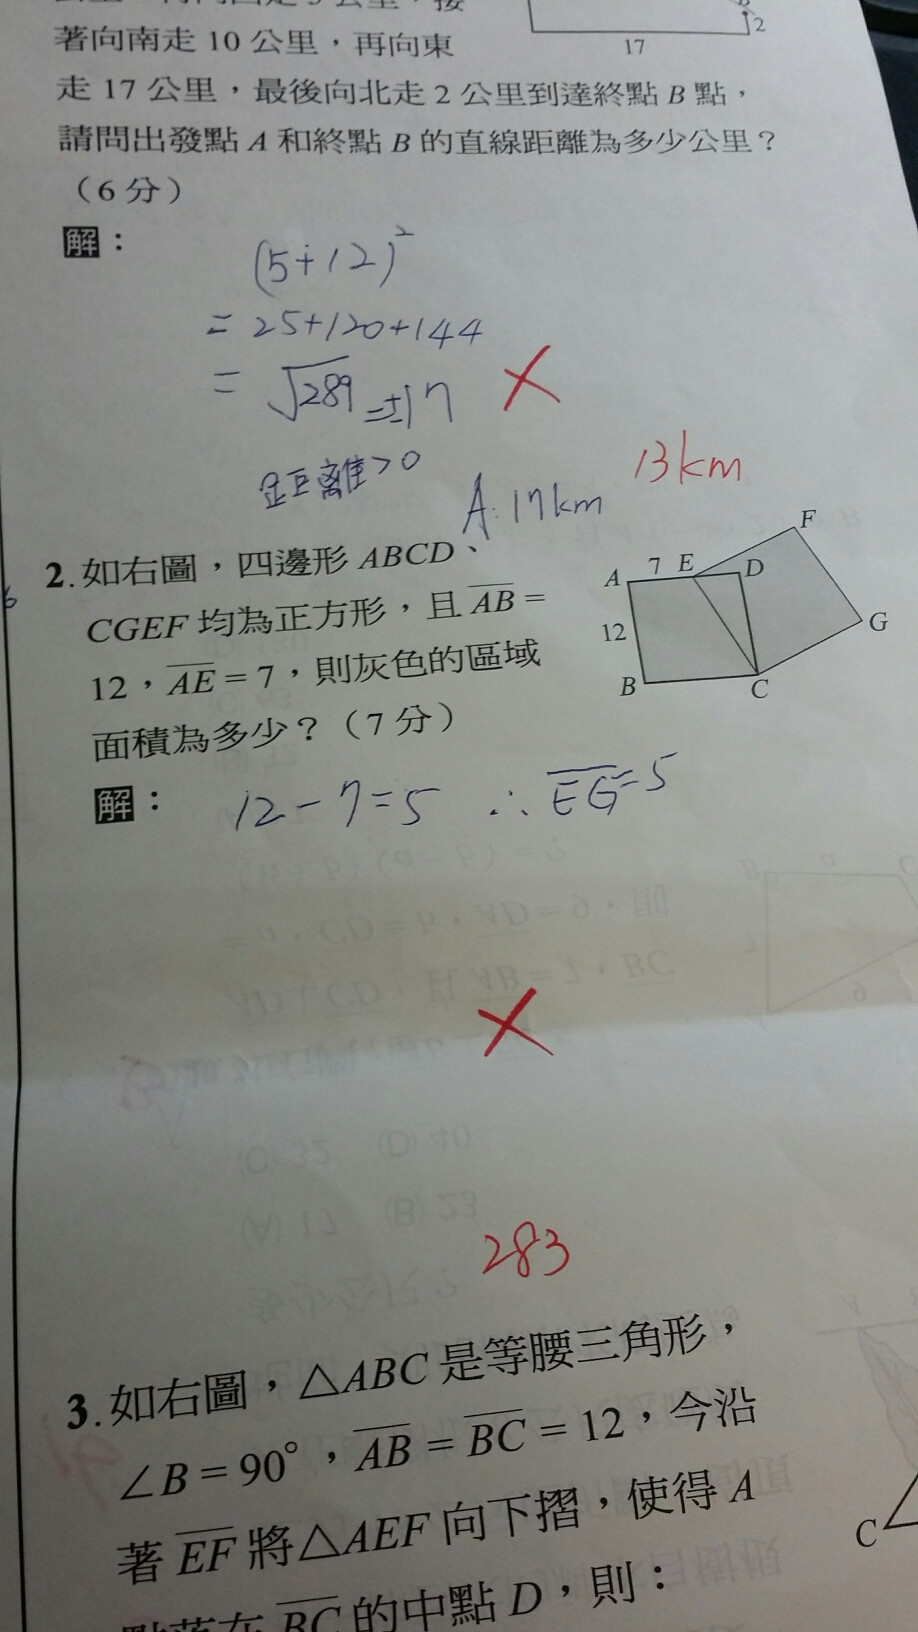 17
2
著向南走 10 公里，再向東
走 17 公里，最後向北走 2 公里到達終點 B 點，
請問出發點 A 和終點 B 的直線距離為多少公里？
（6 分）
解：
(5+12)²
= 25+120+144
= √289 =±17
距離>0
A: 17km
13km
2. 如右圖，四邊形 ABCD、
CGEF 均為正方形，且 AB =
12，AE = 7，則灰色的區域
面積為多少？（7 分）
A 7 E D F
12 G
B C
解：
12-7=5 ∴ EG=5
283
3. 如右圖，△ABC 是等腰三角形，
∠B = 90°，AB = BC = 12，今沿
著 EF 將△AEF 向下摺，使得 A
點落在 BC 的中點 D，則：
C